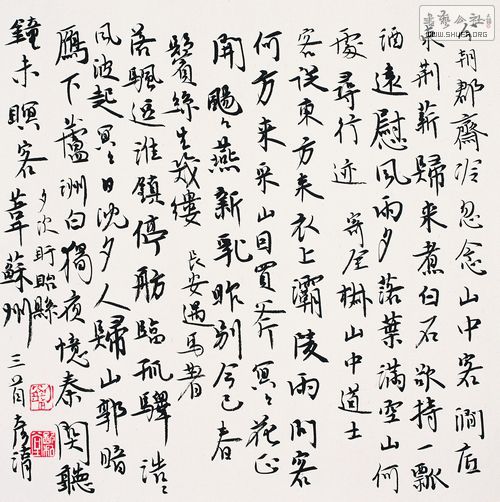 今朝郡齋冷忽念山中客澗底
束荆薪歸来煮白石欲持一瓢
酒遠慰風雨夕落葉滿空山何
處尋行迹 寄全椒山中道士
客從東方来衣上灞陵雨問客
何方来采山因買斧冥々花正
開颺々燕新乳昨別今已春
鬢絲生幾縷 長安遇馮著
落颿逗淮鎮停舫臨孤驛浩々
風波起冥々日沈夕人歸山郭暗
鴈下蘆洲白獨夜憶秦関聽
鐘未瞑客
夕次盱眙縣
韋蘇州 三首
WWW.SHUFA.ORG